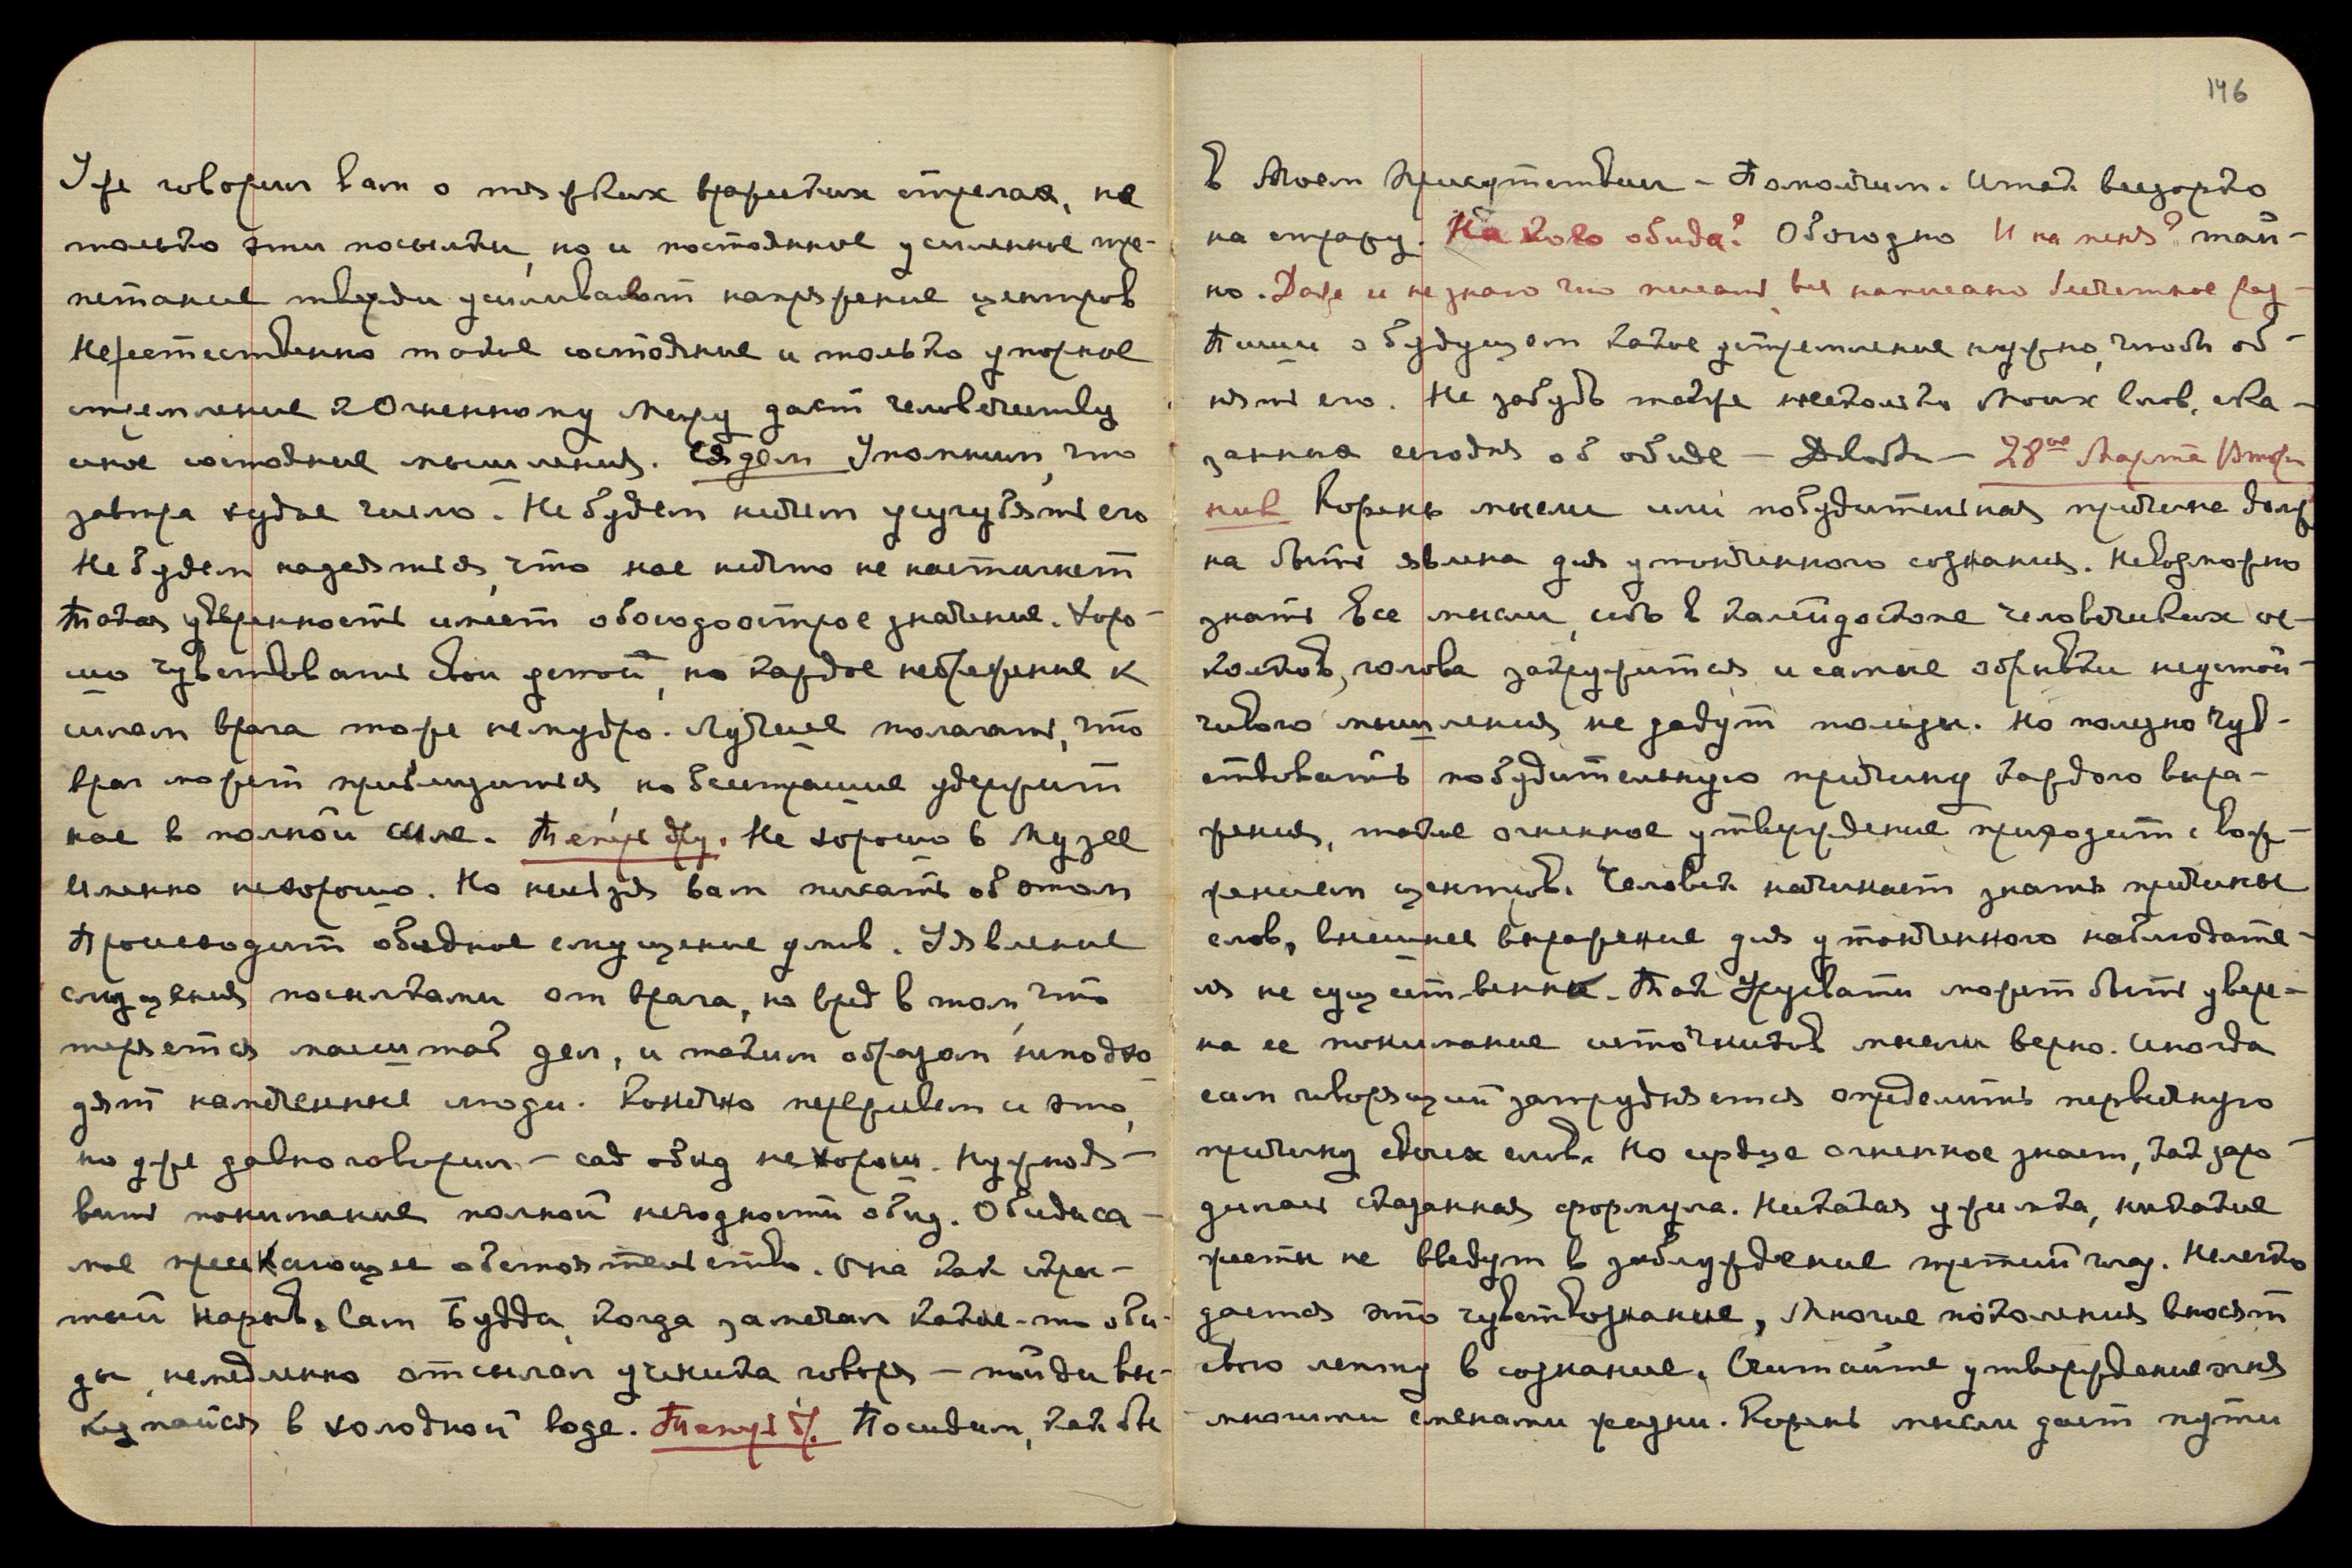 Уже говорил вам о тяжких вражеских стрелах, не
только эти посылки, но и постоянное усиленное тре-
петание тверди усиливают напряжение центров
Неестественно такое состояние и только упорное
стремление к Огненному Миру дает человечеству
иное состояние мышления. Сядем Упомним, что
завтра худое число. Не будем ничем усугублять его
Не будем надеяться, что нас ничто не настигнет
Такая уверенность имеет обоюдоострое значение. Хоро-
шо чувствовать свои устой, но каждое небрежение к
силам врага тоже немудро. Лучше полагать, что
враг может приблизиться, но бесстрашие удержит
нас в полной силе. Не хорошо в Музее
Именно нехорошо. Но нельзя вам писать об этом
Происходит обидное смущение умов. Уявление
смущения посылками от врага, но вред в том, что
теряется масштаб дел, и таким образом
дят намеченные люди. Конечно переживем и это,
но уже давно говорил - сад обид не хорош. Нужно я-
вить понимание полной негодности обид. Обида са-
мое пресекающее обстоятельство. Она как скры-
тый нарыв. Сам Будда, когда замечал какие-то оби-
ды, немедленно отсылал ученика говоря - пойди вы-
купайся в холодной воде. Посидим, как бы
146
в Моем Присутствии - Помолчим. Итак выдержо
на стражу. На кого обида? Обоюдно И на меня? тай-
но. Даже и не знаю что писать, все написано
Пиши о будущем какое устремление нужно, чтобы об-
нять его. Не забудь также несколько Моих слов, ска-
занных сегодня об обиде - 28ое Марта Втор
ник Корень мысли или побудительная причина долж
на быть явлена для утонченного сознания. Невозможно
знать все мысли, ибо в калейдоскопе человеческих ос-
колков, голова закружится и самые обрывки неустой-
чивого мышления не дадут пользы. Но полезно чув-
ствовать побудительную причину каждого выра-
жения, такое огненное утверждение приходит с вооружением центров. Человек начинает знать причины
слов, внешнее выражение для утонченного наблюдате-
ля не существенно. Так Урусвати может быть увере-
на ее понимание источников мысли верно. Иногда
сам говорящий затрудняется определить первичную
причину своих слов. Но сердце огненное знает, как заро
дилась сказанная формула. Никакая ужимка, никакие
жесты не введут в заблуждение третий глаз. Нелегко
дается это чувствознание, Многие поколения вносят
свою лепту в сознание. Считайте утверждение огня
многими сменами жизни. Корень мысли дает пути